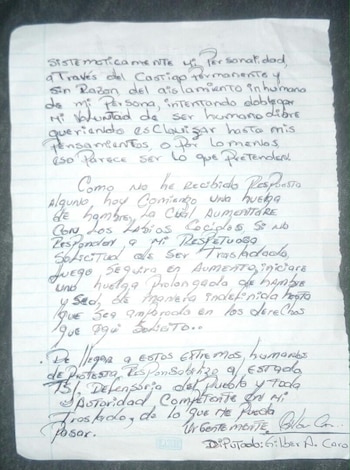 Sistematicamente mi Personalidad,
a Través del Castigo permanente y
sin Razón del aislamiento inhumano
de mi Persona, intentando doblegar
mi voluntad de ser humano libre
queriendo esclavizar hasta mis
Pensamientos, o Por lo menos
eso Parece ser lo que Pretenden.
Como no he Recibido Respuesta
alguna, hoy Comienzo una huelga
de hambre, la Cual Aumentare
con los labios Cocidos si no
Responden a mi Respetuosa
solicitud de ser Trasladado,
luego seguira en Aumento, iniciare
una huelga Prolongada de hambre
y sed, de manera indefinida hasta
que sea amparado en los derechos
que aqui solicito..
. De llegar a estos extremos humanos
de Protesta, Responsabilizo al Estado,
TSJ, Defensoria del Pueblo y toda
Autoridad Competente en mi
Traslado, de lo que me pueda
Pasar.
Urgentemente,
Diputado: Gilber A. Caro